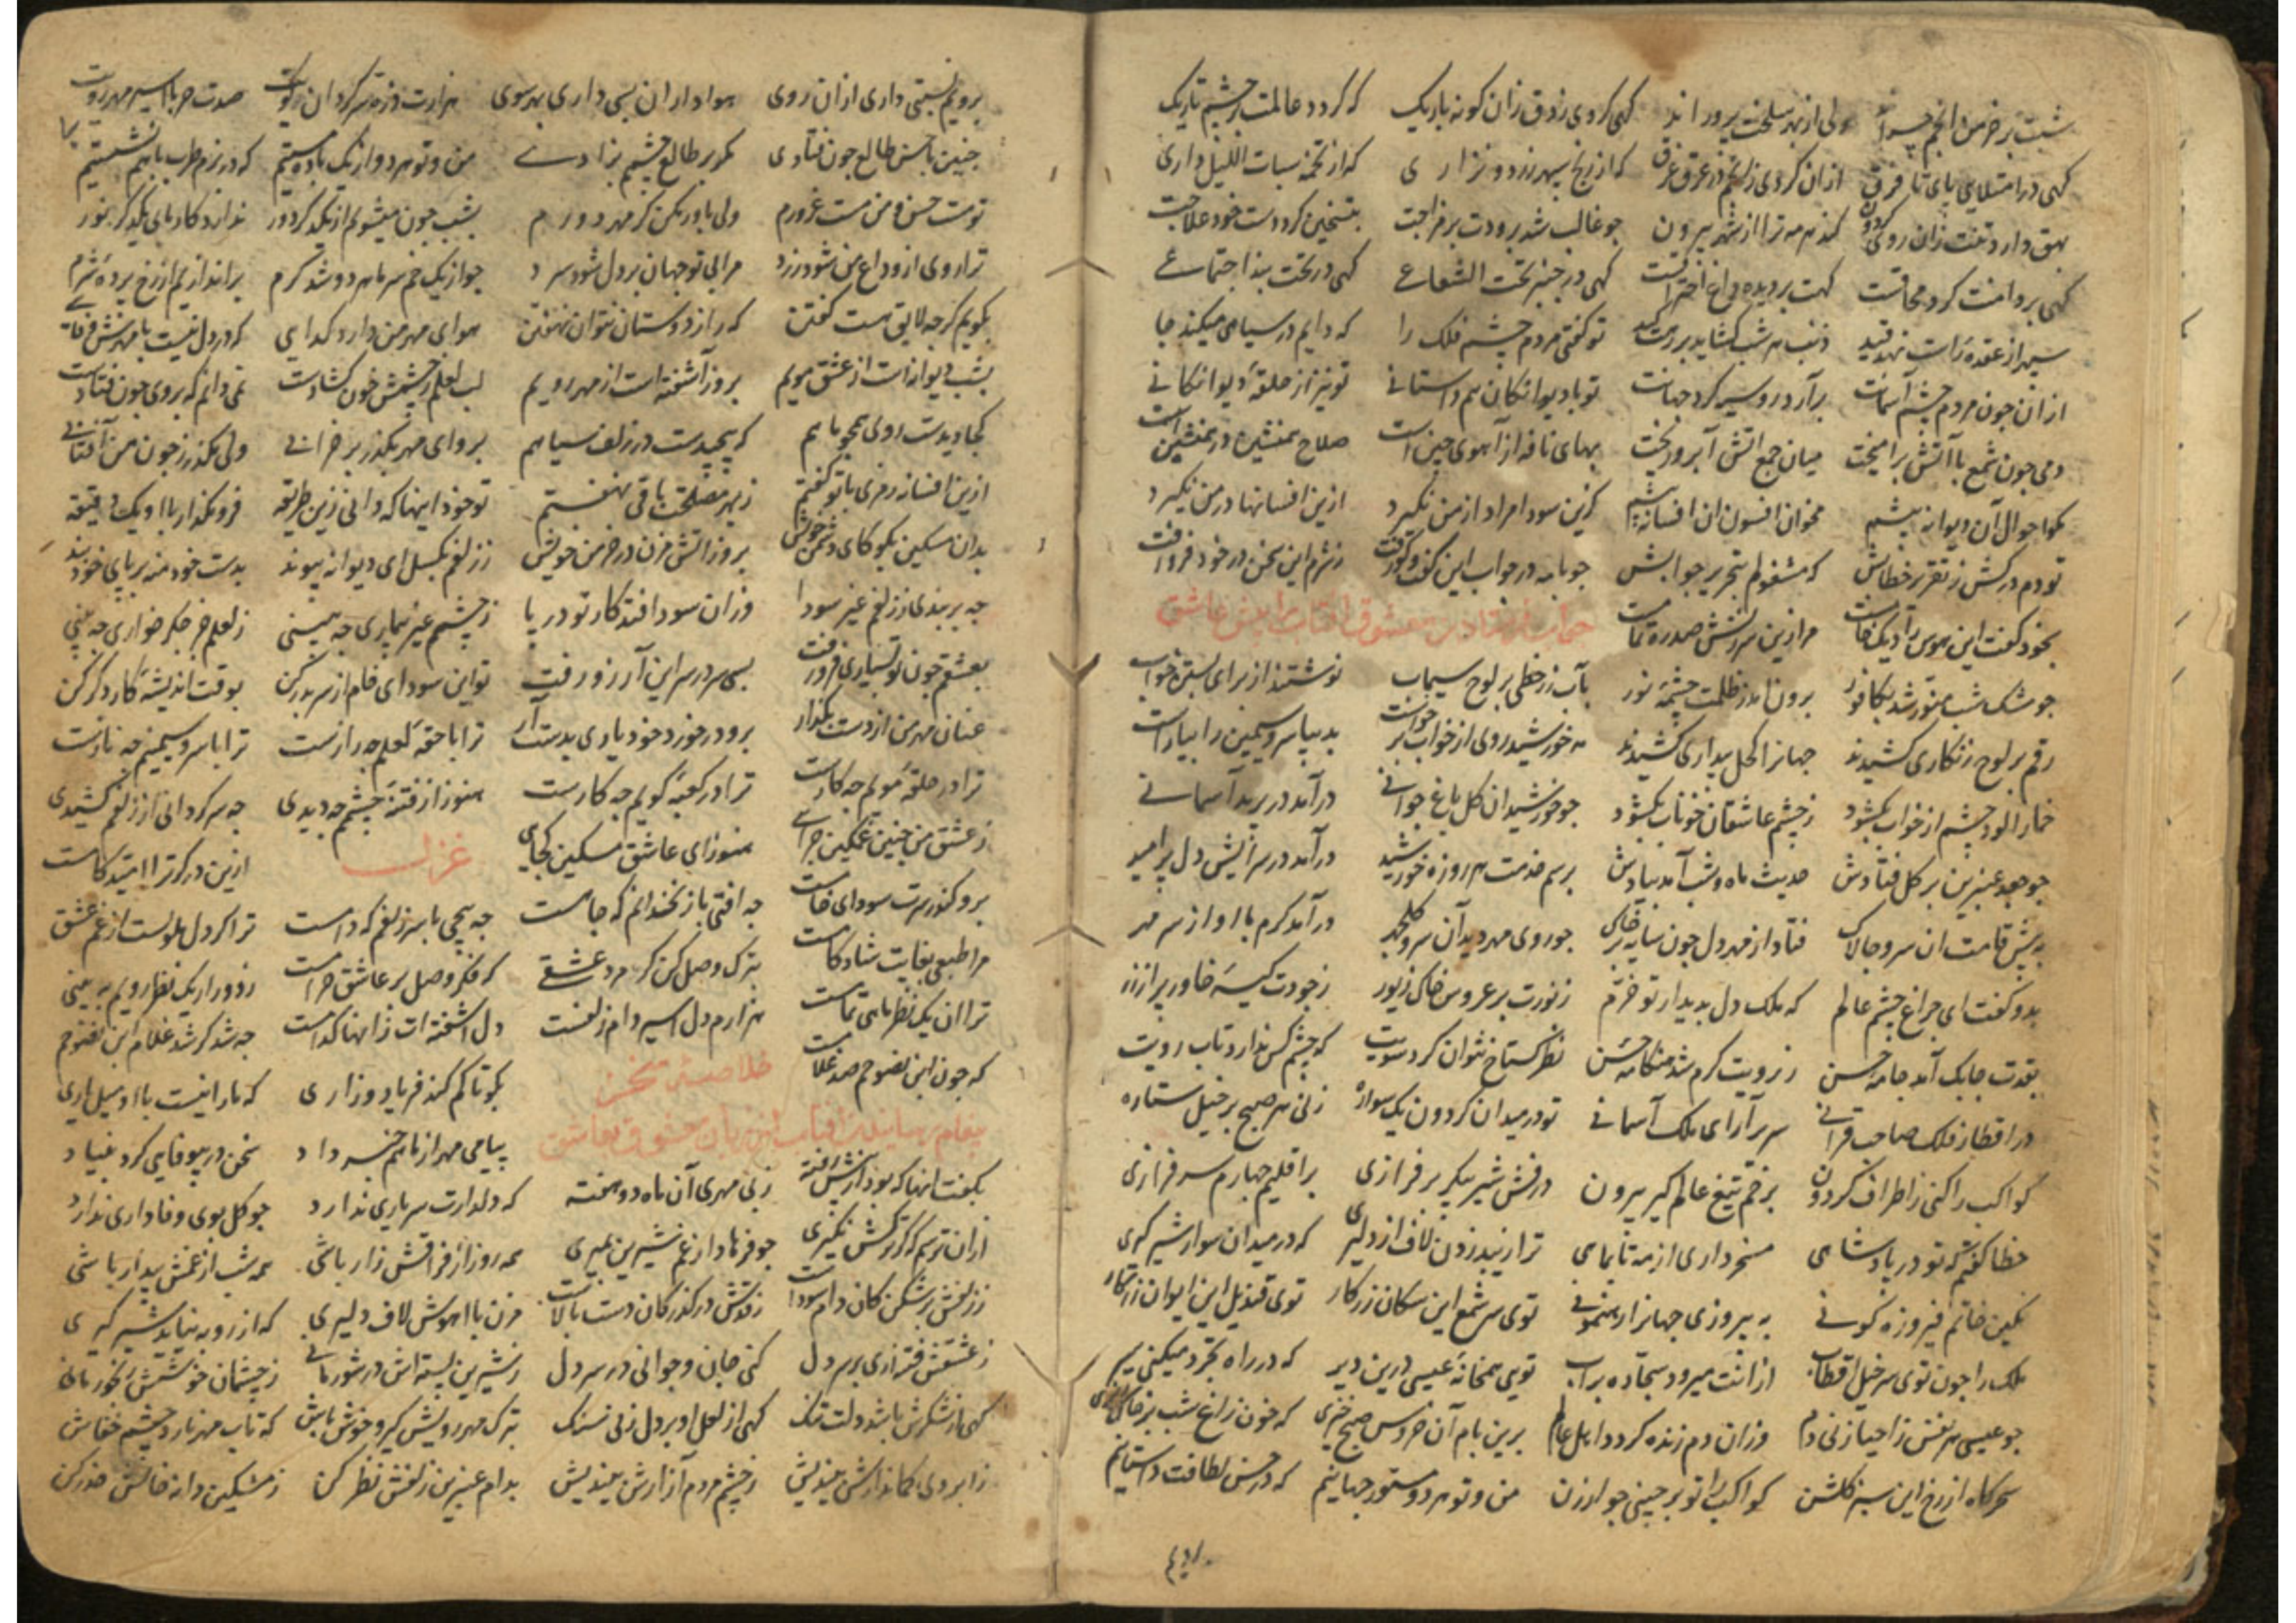 شبت بر خرمن انجم چراند ولی از بهر سلخت پروراند کهی کردی ز دق زان کونه باریک که کردد عالمت در چشم تاریک
کهی در امتلای پای تا فرق ازان کردی ز انجم در عرق غرق که از رنج سپهر زرد و نزاری که از تخمه سبات اللیل داری
بهق دارد تنت زان روی کردون کند هر مه ترا از شهر بیرون جو غالب شد برودت بر مزاجت بتسخین کرد دست خود علاجت
کهی بر دامنت کرد محاقست کهت بر دیده داغ احتراقست کهی در جنبر تحت الشعاعی کهی در تحت بند اجتماعی
سپهر از عقده راست نهد قید ذنب هر شب کشاید بر رهت کید تو کفتی مردم چشم فلک را که دایم در سیاهی میکند جا
ازان چون مردم چشم آسمانت برآرد رو سیه کرد جهانت تو با دیوانکان هم داستانی تو نیز از حلقه دیوانکانی
دمی جون شمع با آتش برامیخت میان جمع اتش آبرو ریخت بهای نافه از آهوی چین است صلاح همنشین در همنشین است
مکو احوال آن دیوانه پیشم مخوان افسون ان افسانه پیشم کزین سودا مراد از من نکیرد ازین افسانها در من نکیرد
تو دم درکش ز تقریر خطابش که مشغولم بتحریر جوابش جو نامه در جواب این کفت و کو رفت ز شرم این سخن در خود فرو رفت
بخود کفت این هوس را دیک خامست مرا زین سرزنش صد ره تمامست جواب فرستادن معشوق افتاب را پیش عاشق
جو مشک شب منور شد بکافور برون آمد ز ظلمت چشمه نور بآب زر خطی بر لوح سیماب نوشتند از برای بستن خواب
رقم بر لوح زنکاری کشیدند جهانرا کحل بیداری کشیدند مه خورشید روی از خواب برخواست بدیبا سرو سیمین را بیاراست
خمارآلود چشم از خواب بکشود ز چشم عاشقان خوناب بکشود جو خورشید ان کل باغ جوانی درآمد در برید آسمانی
جو جعد عنبرین بر کل فتادش حدیث ماه و شب آمد بیادش برسم خدمت هر روزه خورشید درآمد در سرایش دل پرامید
به پیش قامت ان سرو جالاک فتاد از مهر دل جون سایه بر خاک جو روی مهر دید آن سرو کلجهر درآمد کرم با او از سر مهر
بدو کفت ای چراغ چشم عالم که ملک دل بدیدار تو خرم ز نورت بر عروس خاک زیور ز جودت کیسه خاور پر از زر
بقدت جابک آمد جامه حسن ز رویت کرم شد هنکامه حسن نظر کستاخ نتوان کرد سویت که چشم کس ندارد تاب رویت
در اقطار فلک صاحب قرانی سریر آرای ملک آسمانی تو در میدان کردون یک سواره زنی هر صبح بر خیل ستاره
کواکب را کنی ز اطراف کردون بزخم تیغ عالم کیر بیرون درفش شیر پیکر برفرازی بر اقلیم چهارم سرفرازی
خطا کفتم که تو در پادشاهی مسخر داری از مه تا بماهی ترا زیبد زدن لاف از دلیری که در میدان سوار شیر کیری
نکین خاتم فیروزه کونی به پیروزی جهانرا رهنمونی توی سر شمع این سکان زرکار توی قندیل این ایوان زنکار
ملک را جون توی سر خیل اقطاب ازانت میرود سجاده بر آب تویی همخانه عیسی درین دیر که در راه تجرد میکنی سیر
جو عیسی هر نفس ز احیا زنی دم وزان دم زنده کردد اهل عالم برین بام آن خروس صبح خیزی که خون زاغ شب بر خاک ریزی
سحرکاه از رخ این سبز کلشن کواکب را تو برچینی جو ارزن من و تو هر دو مستور جهانیم که در حسن لطافت داستانیم
برویم نسبتی داری ازان روی هواداران بسی داری بهر سوی هزارت ذره سرکردان کویت صدت حربا اسیر مهر رویت
چنین باشن طالع جون فتادی مکر بر طالع چشمم بزادی من و تو هر دو از یک باده مستیم که در بزم طرب باهم نشستیم
تو مست حسن و من مست غرورم ولی باور مکن کز مهر دورم بشب جون میشویم از یکدکر دور ندارد کار ما بی یکدکر نور
ترا روی از وداع من شود زرد مرا بی تو جهان بر دل شود سرد جو از یک خم سر ما هر دو شد کرم براندازیم از رخ پرده شرم
بکویم کرجه لایق نیست کفتن که راز از دوستان نتوان نهفتن هوای مهر من دارد کدایی که در دل نیست با مهرش وفایی
بشب دیوانه است از عشق مویم بروز آشفته است از مهر رویم لب لعلم ز چشمش خون کشادست نمی دانم که بر وی جون فتادست
کجا دیدست او لی همچو ماهم که پیچیدست در زلف سیاهم برو ای مهر بکذر بر خرابی ولی مکذر ز جون من آفتابی
ازین افسانه رمزی با تو کفتم ز بهر مصلحت باقی نهفتم تو خود اینها که دانی زین طریقه فرو مکذار با او یک دقیقه
بدان مسکین بکو کای دشمن خویش بروز اتش مزن در خرمن خویش ز زلفم بکسل ای دیوانه پیوند بدست خود منه بر پای خود بند
جه بربندی ز زلفم غیر سودا وزان سودا فتد کار تو در پا ز چشمم غیر بیماری جه بینی ز لعلم جز جکر خواری جه بینی
بعشقم جون تو بسیاری فرو رفت بسی سر در سر این آرزو رفت تو این سودای خام از سر بدر کن بوقت اندیشه کار دکر کن
عنان مهر من از دست بکذار برو در خورد خود یاری بدست آر ترا با حقه لعلم جه رازست ترا با سرو سیمینم جه نازست
ترا در حلقه مویم جه کارست ترا در کعبه کویم جه کارست هنوز از فتنه چشمم جه دیدی جه سرکردانی از زلفم کشیدی
ز عشق من چنین غمکین چرایی هنوز ای عاشق مسکین کجایی غزل ازین در کر ترا امید کامست
برو کنون سرت سودای خامست جه افتی با زنخدانم که جاهست جه پیچی با سر زلفم که دامست ترا کر دل ملولست از غم عشق
مرا طبعی بغایت شادکامست بترک وصل کن کر مرد عشقی که فکر وصل بر عاشق حرامست ز دور ار یک نظر رویم به بینی
ترا ان یک نظر ماهی تمامست هزارم دل اسیر دام زلفست دل اشفته ات زانها کدامست جه شد کر شد غلام این نصوحم
که جون ابن نصوحم صد غلامست خلاصه سخن بکو تا کم کند فریاد و زاری که ما را نیست با او میل یاری
پیغام رسانیدن آفتاب از زبان معشوق بعاشق پیامی مهر از ماهم خبر داد سخن در بیوفایی کرد بنیاد
بکفت انها که بود از پیش رفته ز بی مهری آن ماه دو هفته که دلدارت سر یاری ندارد جو کل بوی وفاداری ندارد
ازان ترسم که کر ترکش نکیری جو فرهاد از غم شیرین بمیری همه روز از فراقش زار باشی همه شب از غمش بیدار باشی
ز زلفش برشکن کان دام سوداست ز قدش درکذر کان دست بالاست مزن با آهوش لاف دلیری که از روبه نیاید شیر کیری
ز عشقش فتنه آری بر سر دل کنی جان و جوانی در سر دل ز شیرین پسته اش در شور مانی ز چشمان خوشش رنجور مانی
کهی از شکرش باشد دلت تنک کهی از لعل او بر دل زنی سنک بترک مهر رویش کیر و خوش باش که تاب مهر نارد چشم خفاش
ز ابروی کماندارش بیندیش ز چشم مردم آزارش بیندیش بدام عنبرین زلفش نظر کن ز مشکین دانه خالش حذر کن